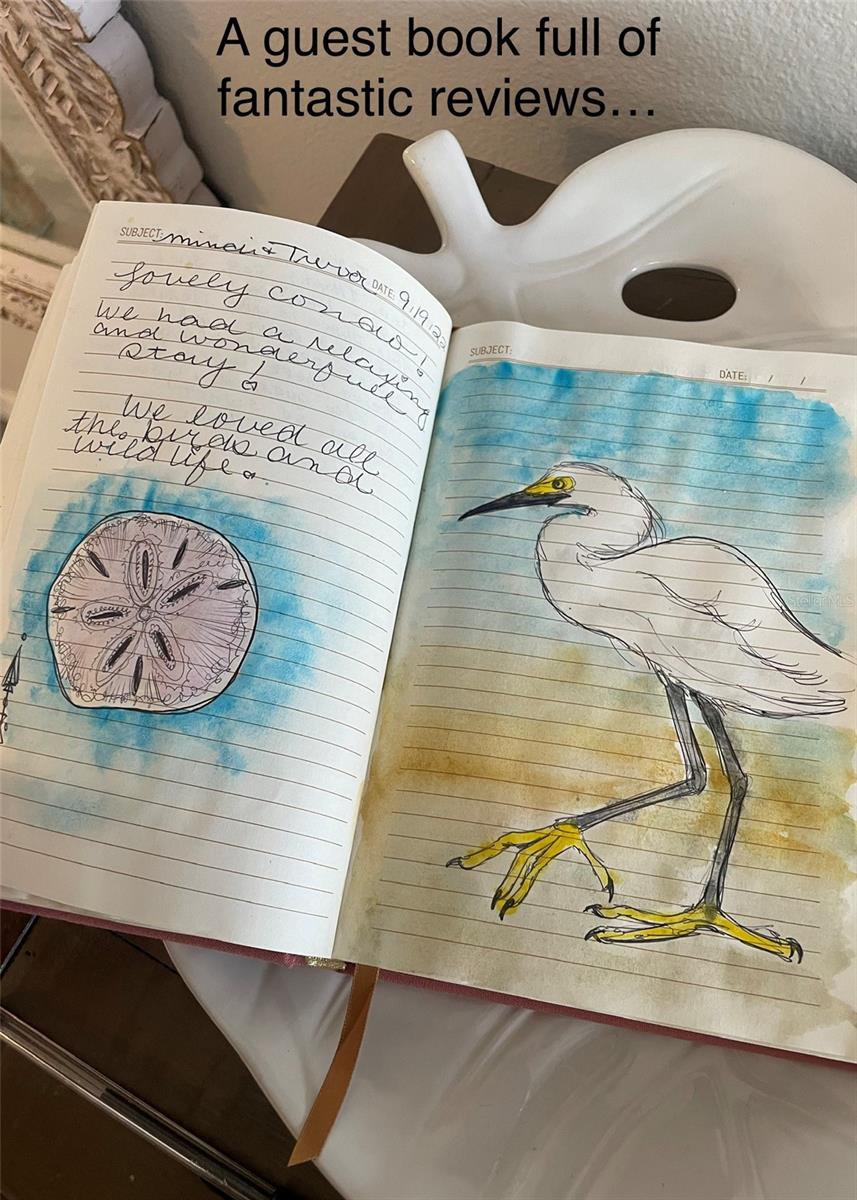 A guest book full of
fantastic reviews...
SUBJECT: & Trevor
DATE: 9/19/22
lovely condo!
We had a relaxing
and wonderfull
stay!
We loved all
the birds and
wildlife.
SUBJECT:
DATE: / /